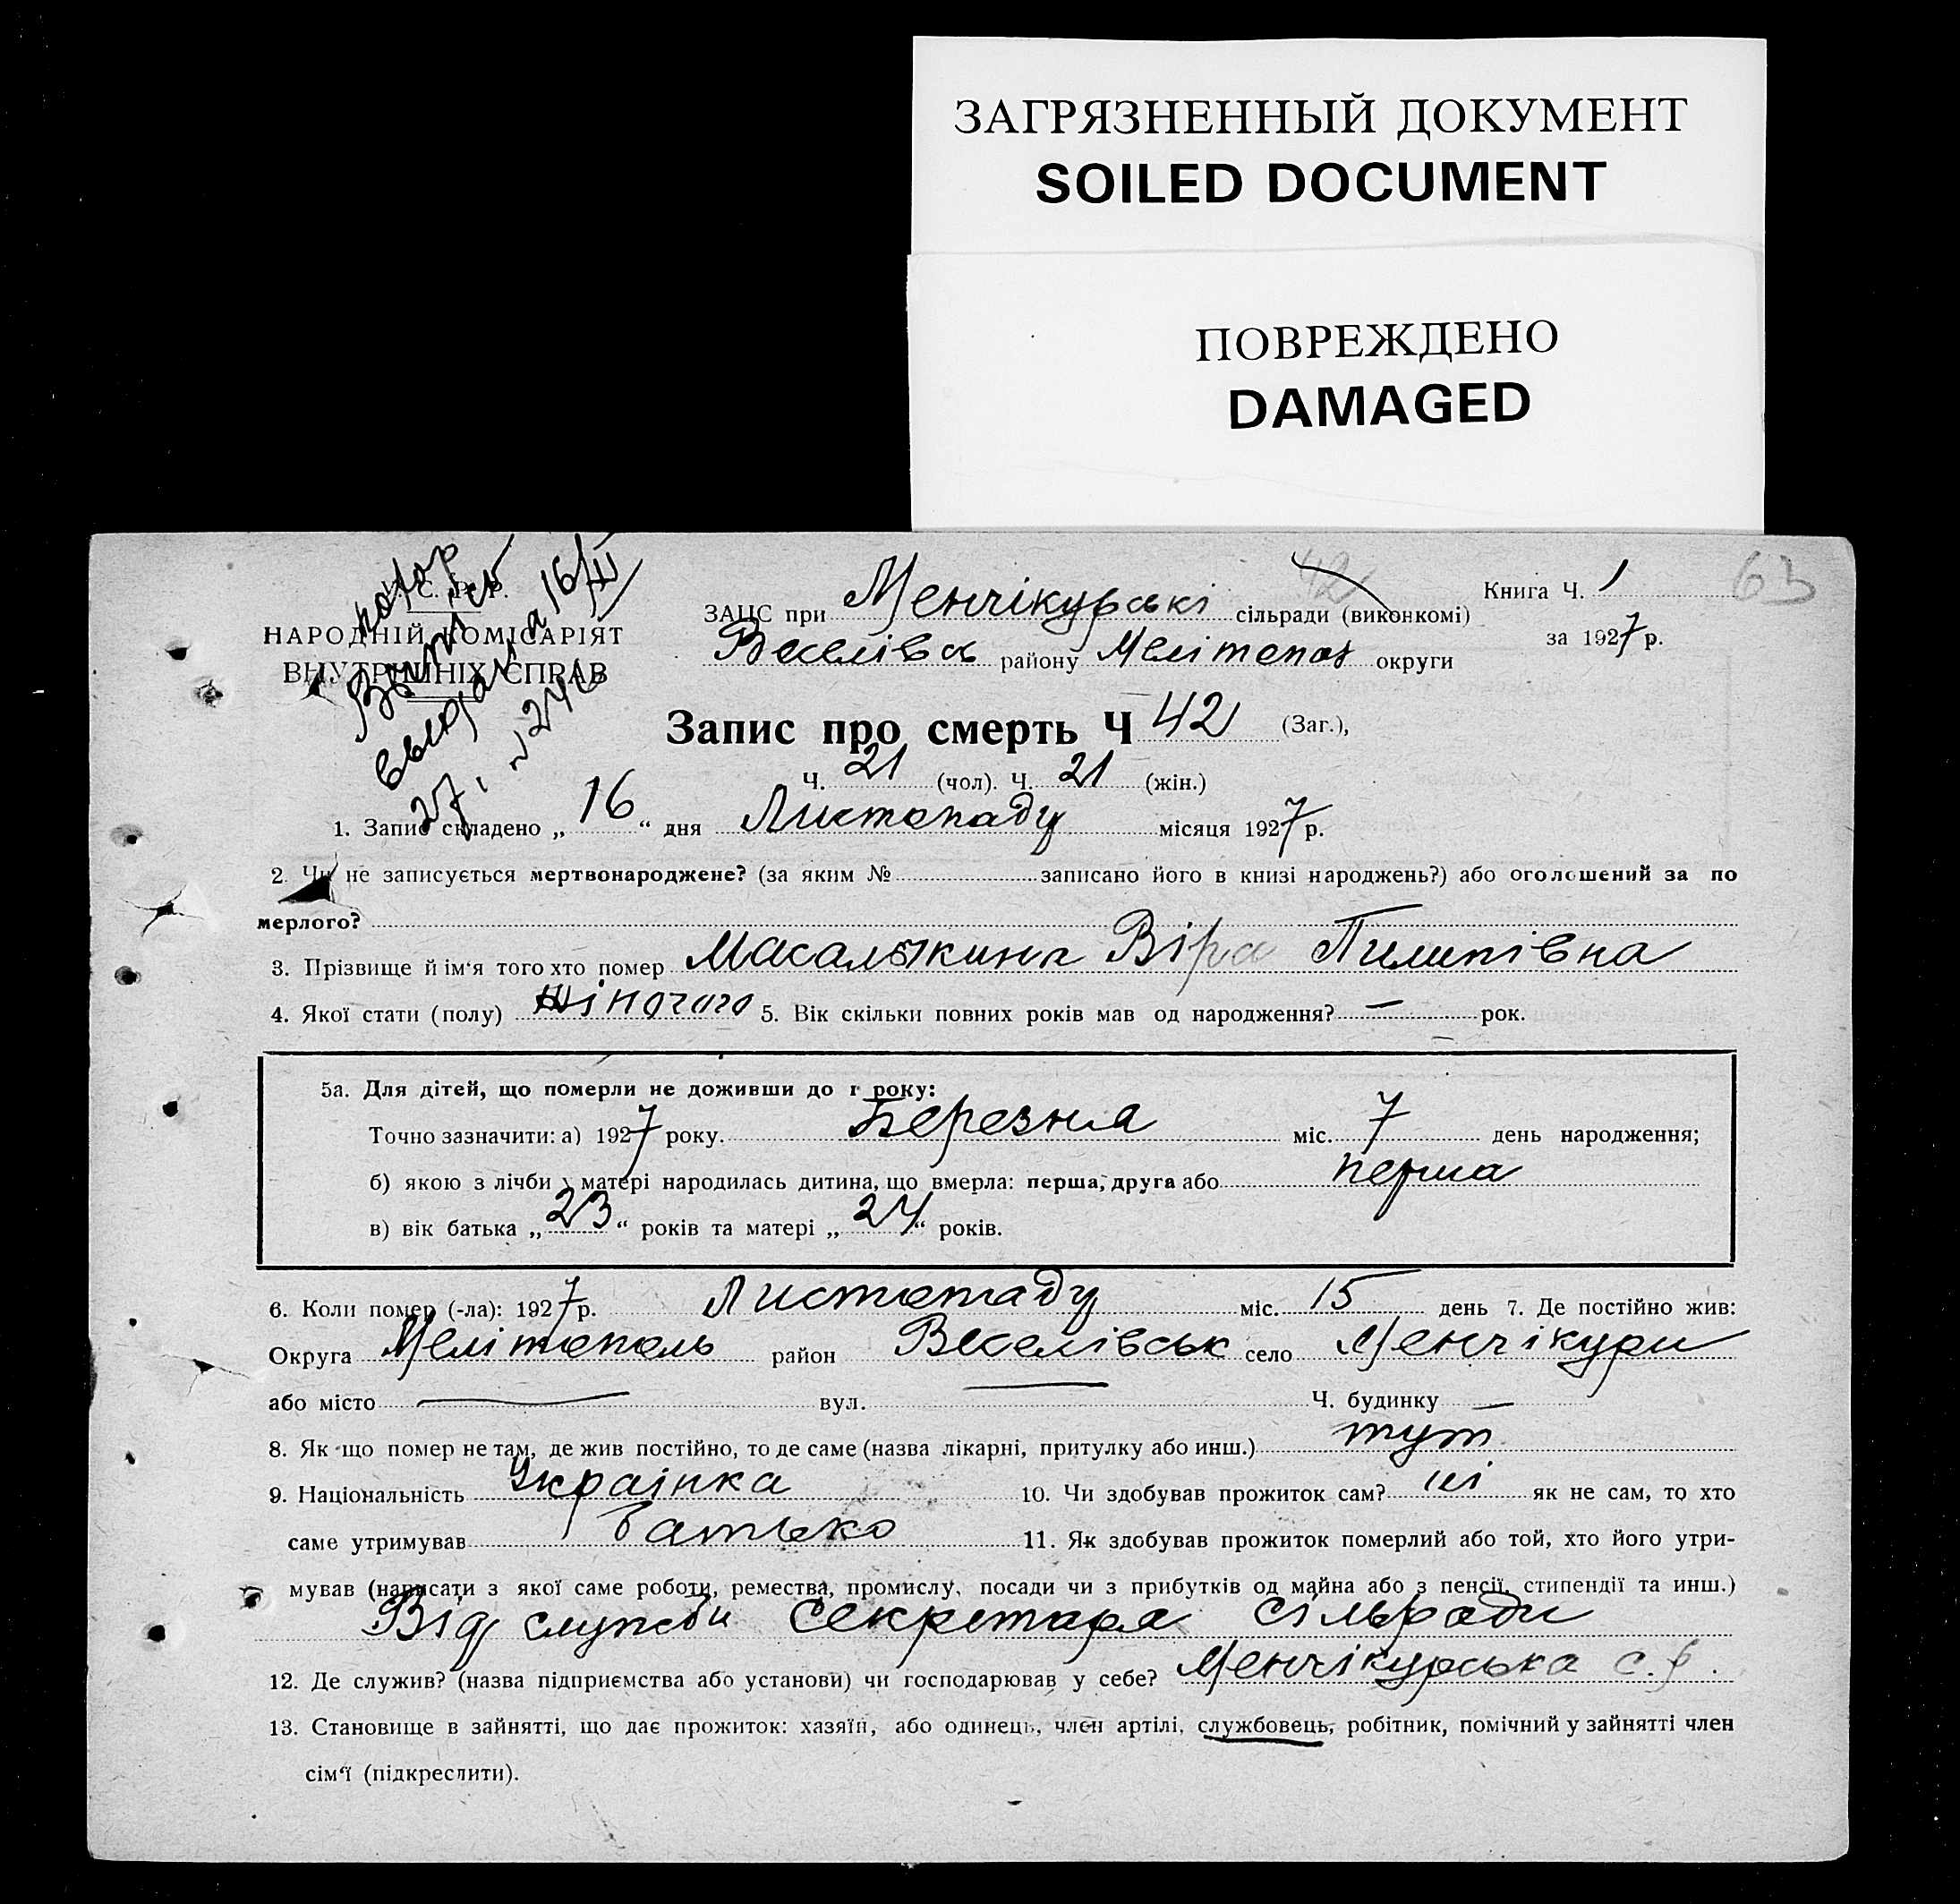 ЗАГРЯЗНЕННЫЙ ДОКУМЕНТ
SOILED DOCUMENT
ПОВРЕЖДЕНО
DAMAGED
63
У. С. Р. Р.
НАРОДНІЙ КОМІСАРІЯТ
ВНУТРІШНІХ СПРАВ
27, 16/XI
ЗАЦС при Менчікурські сільради (виконкомі)
Веселівсь району Мелітопол округи
42
Книга Ч. 1
за 1927 р.
Запис про смерть Ч 42 (Заг.),
Ч. 21 (чол). Ч. 21 (жін.)
1. Запис складено „ 16 “ дня Листопаду місяця 1927 р.
2. Чи не записується мертвонароджене? (за яким № записано його в книзі народжень?) або оголошений за по
мерлого?
3. Прізвище й ім‘я того хто помер Масалыкина Віра Пилипівна
4. Якої стати (полу) жіночого 5. Вік скільки повних років мав од народження? — рок.
5а. Для дітей, що померли не доживши до 1 року:
Точно зазначити: а) 1927 року. Березня міс. 7 день народження;
б) якою з лічби у матері народилась дитина, що вмерла: перша, друга або перша
в) вік батька „ 23 “ років та матері „ 24 “ років.
6. Коли помер (-ла): 1927 р. Листопаду міс. 15 день 7. Де постійно жив:
Округа Мелітополь район Веселівськ село Менчікури
або місто — вул. — Ч. будинку —
8. Як-що помер не там, де жив постійно, то де саме (назва лікарні, притулку або инш.) тут
9. Національність Українка 10. Чи здобував прожиток сам? ні як не сам, то хто
саме утримував батько 11. Як здобував прожиток померлий або той, хто його утри-
мував (написати з якої саме роботи, ремества, промислу, посади чи з прибутків од майна або з пенсії, стипендії та инш.)
Від служби Секретаря сільради
12. Де служив? (назва підприємства або установи) чи господарював у себе? Менчікурська с.р.
13. Становище в зайнятті, що дає прожиток: хазяїн, або одинець, член артілі, службовець, робітник, помічний у зайнятті член
сім‘ї (підкреслити).